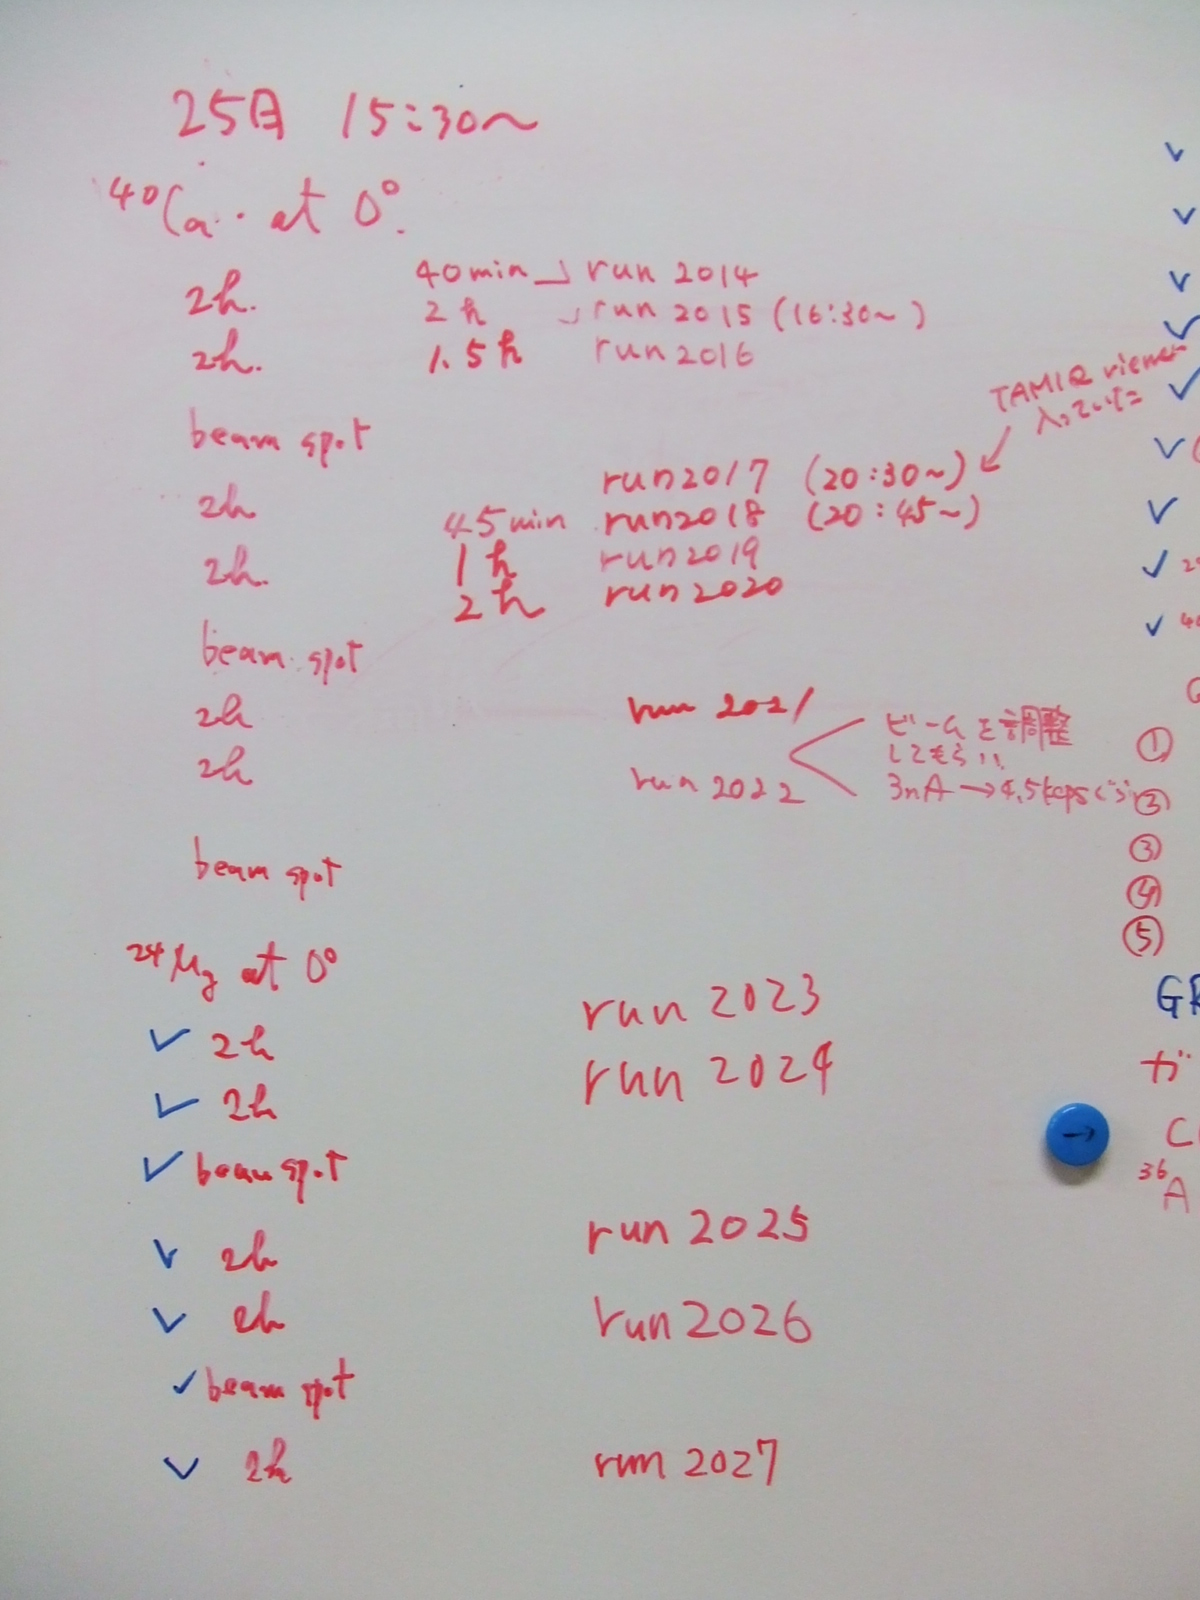 25日 15:30~
40Ca at 0°
2h. 40min run 2014
2h run 2015 (16:30~)
2h. 1.5h run 2016
TAMIQ viewer
入っていた
beam spot
run 2017 (20:30~)
2h 45min run 2018 (20:45~)
2h. 1h run 2019
2h run 2020
beam spot
2h run 2021
ビームを調整
してもらい
2h run 2022 3nA→4.5kcps
① 
②
beam spot ③
④
⑤
24Mg at 0°
✓ 2h run 2023
✓ 2h run 2024
→
✓ beam spot
36A
✓ 2h run 2025
✓ 2h run 2026
✓ beam spot
✓ 2h run 2027